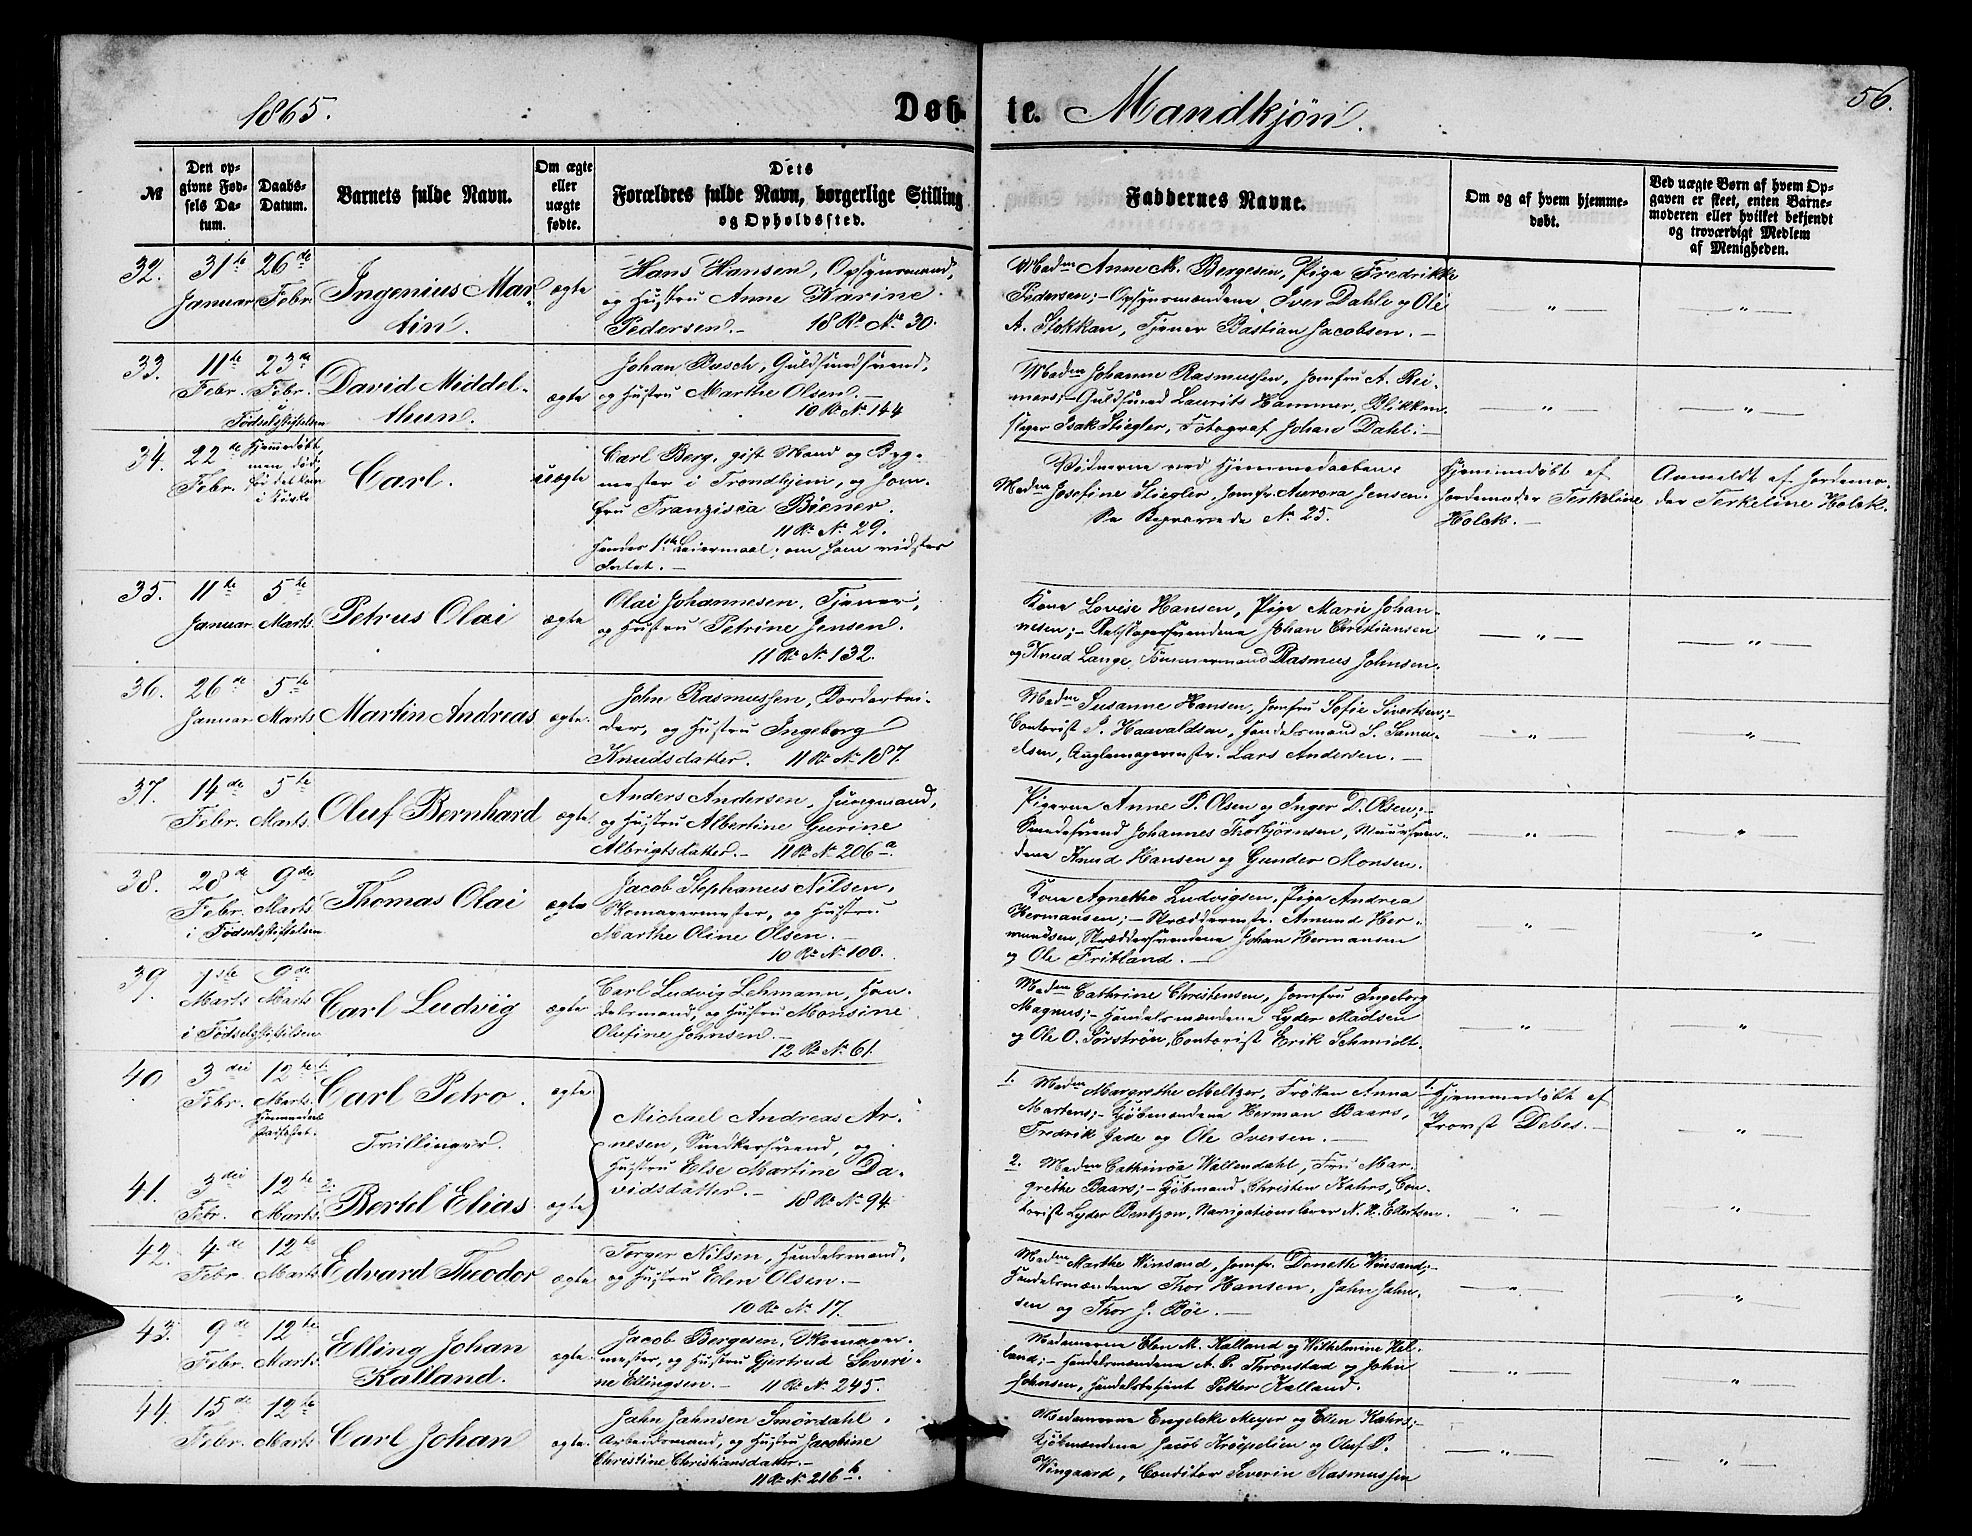 1865.
Døbte. Mandkjøn.
56.
№
Den op-
givne Fød-
sels Da-
tum.
Daabs-
Datum.
Barnets fulde Navn.
Om ægte
eller
uægte
fødte.
Dets
Forældres fulde Navn, borgerlige Stilling
og Opholdssted.
Faddernes Navne.
Om og af hvem hjemme-
døbt.
Ved uægte Børn af hvem Op-
gaven er skeet, enten Barne-
moderen eller hvilket bekjendt
og troværdigt Medlem
af Menigheden.
32.
31te
Januar
26de
Febr.
Ingenius Mar-
tin.
ægte
Hans Hansen, Opsynsmand,
og Hustru Anne Karine
Pedersen. — 18 R. No 30.
Madm Anne M. Bergesen, Pige Fredrikke
Pedersen; — Opsynsmændene Iver Dahle og Ole
A. Stokkan, Tjener Bastian Jacobsen. —
— " —
— " —
33.
11te
Febr.
23de
Febr.
i Fødselsstiftelsen
David Middel-
thun.
ægte
Johan Busch, Guldsmedsvend,
og Hustru Marthe Olsen. —
10 R. No 144
Madm Johanne Rasmussen, Jomfru A. Rei-
mers; — Guldsmed Laurits Hammer, Blikken-
slager Isak Stiegler, Fotograf Johan Dahl. —
— " —
— " —
34.
22de
Febr.
Hjemmedøbt,
men død,
før det kom
i Kirke
Carl.
uægte
Carl Berg, gift Mand og Byg-
mester i Trondhjem, og Jom-
fru Franzisca Biener.
11 R. No 29.
Hendes 1ste Leiermaal; om ham vidstes
Intet. —
Vidnerne ved Hjemmedaaben:
Madm Josefine Stiegler, Jomfr. Aurora Jensen.
Se Begravede No 25.
Hjemmedøbt af
Jordemoder Terkeline
Holck. —
Anmeldt af Jordemo-
der Terkeline Holck.
35.
11te
Januar
5te
Marts.
Petrus Olai
ægte
Olai Johannesen, Tjener,
og Hustru Petrine Jensen.
11 R. No 132.
Kone Lovise Hansen, Pige Marie Johan-
nesen; — Rebslagersvendene Johan Christiansen
og Knud Lange, Tømmermand Rasmus Johnsen.
— " —
— " —
36.
26de
Januar
5te
Marts
Martin Andreas
ægte.
John Rasmussen, Bordarbei-
der, og Hustru Ingeborg
Knudsdatter. 11 R. No 187.
Madm Susanne Hansen, Jomfru Sofie Sivertsen; —
Contorist P. Haavaldsen, Handelsmand S. Samu-
elsen, Lars Andersen. —
— " —
— " —
37.
14de
Febr.
5te
Marts.
Oluf Bernhard
ægte.
Anders Andersen,
og Hustru Albertine Gurine
Albrigtsdatter. — 11 R. No 206a.
Pigerne Anne P. Olsen og Inger D. Olsen; —
Smedesvend Johannes Thorbjørnsen, Muursven-
dene Knud Hansen og Gunder Monsen.
— " —
"
38.
28de
Febr.
9de
Marts
i Fødselsstiftelsen
Thomas Olai
ægte
Jacob Stephanus Nilsen,
Skomagermester, og Hustru
Marthe Oline Olsen. —
10 R. No 100.
Kone Agnethe Ludvigsen, Pige Andrea
Hermansen; — Skræddermstr. Amund Her-
mundsen, Skræddersvendene Johan Hermansen
og Ole Fritland. —
— " —
"
39.
1ste
Marts
9de
Marts
i Fødselsstiftelsen
Carl Ludvig
ægte
Carl Ludvig Lehmann, Han-
delsmand, og Hustru Monsine
Olufine Johnsen. —
12 R. No 61.
Madm Cathrine Christensen, Jomfru Ingeborg
Magnus; — Handelsmændene Lyder Madsen
og Ole O. Sørstrøn, Contorist Erik Schmidt.
— " —
— " —
40
3die
Febr.
12te
Marts.
Hjemmedaab
stadfæstet.
1. Carl Petro.
Trillinger.
ægte
Michael Andreas Ar-
nesen, Snedkersvend, og
Hustru Else Martine Da-
vidsdatter. —
18 R. No 94.
1. Madm Margrethe Meltzer, Frøken Anna
Martens; — Kjøbmændene Herman Baars,
Fredrik Gade og Ole Iversen. —
1. Hjemmedøbt af
Provst Debes. —
— " —
41.
3die
Febr.
12te
Marts.
2. Bertel Elias.
ægte
2. Madm Cathinca Wallendahl, Fru Mar-
grethe Baars; — Kjøbmand Christen Kahrs, Con-
torist Lyder Bentzon, Navigationslærer N. N. Ellertsen.
— " —
— " —
42.
4de
Febr.
12te
Marts.
Edvard Theodor
ægte
Torger Nilsen, Handelsmand,
og Hustru Elen Olsen. —
10 R. No 17.
Madm Marthe Winsand, Jomfr. Donette Winsand; —
Handelsmændene Thor Hansen, John John-
sen og Thor J. Bøe. —
— " —
— " —
43.
9de
Febr.
12te
Marts.
Elling Johan
Kalland.
ægte
Jacob Bergesen, Skomager-
mester, og Hustru Gjertrud Severi-
ne Ellingsen. — 11 R. No 245.
Madamerne Elen M. Kalland og Wilhelmine Hel-
land; — Handelsmændene A. C. Thronstad og John
Johnsen, Handelsbetjent Petter Kalland.
— " —
— " —
44.
15de
Febr.
12te
Marts.
Carl Johan
ægte.
John Johnsen Smørdahl,
Arbeidsmand, og Hustru Jacobine
Christine Christiansdatter. —
11 R. No 216b
Madamerne Engelche Meyer og Ellen Kahrs; —
Kjøbmændene Jacob Krøepelien og Oluf P.
Wingaard, Conditor Severin Rasmussen
— " —
— " —